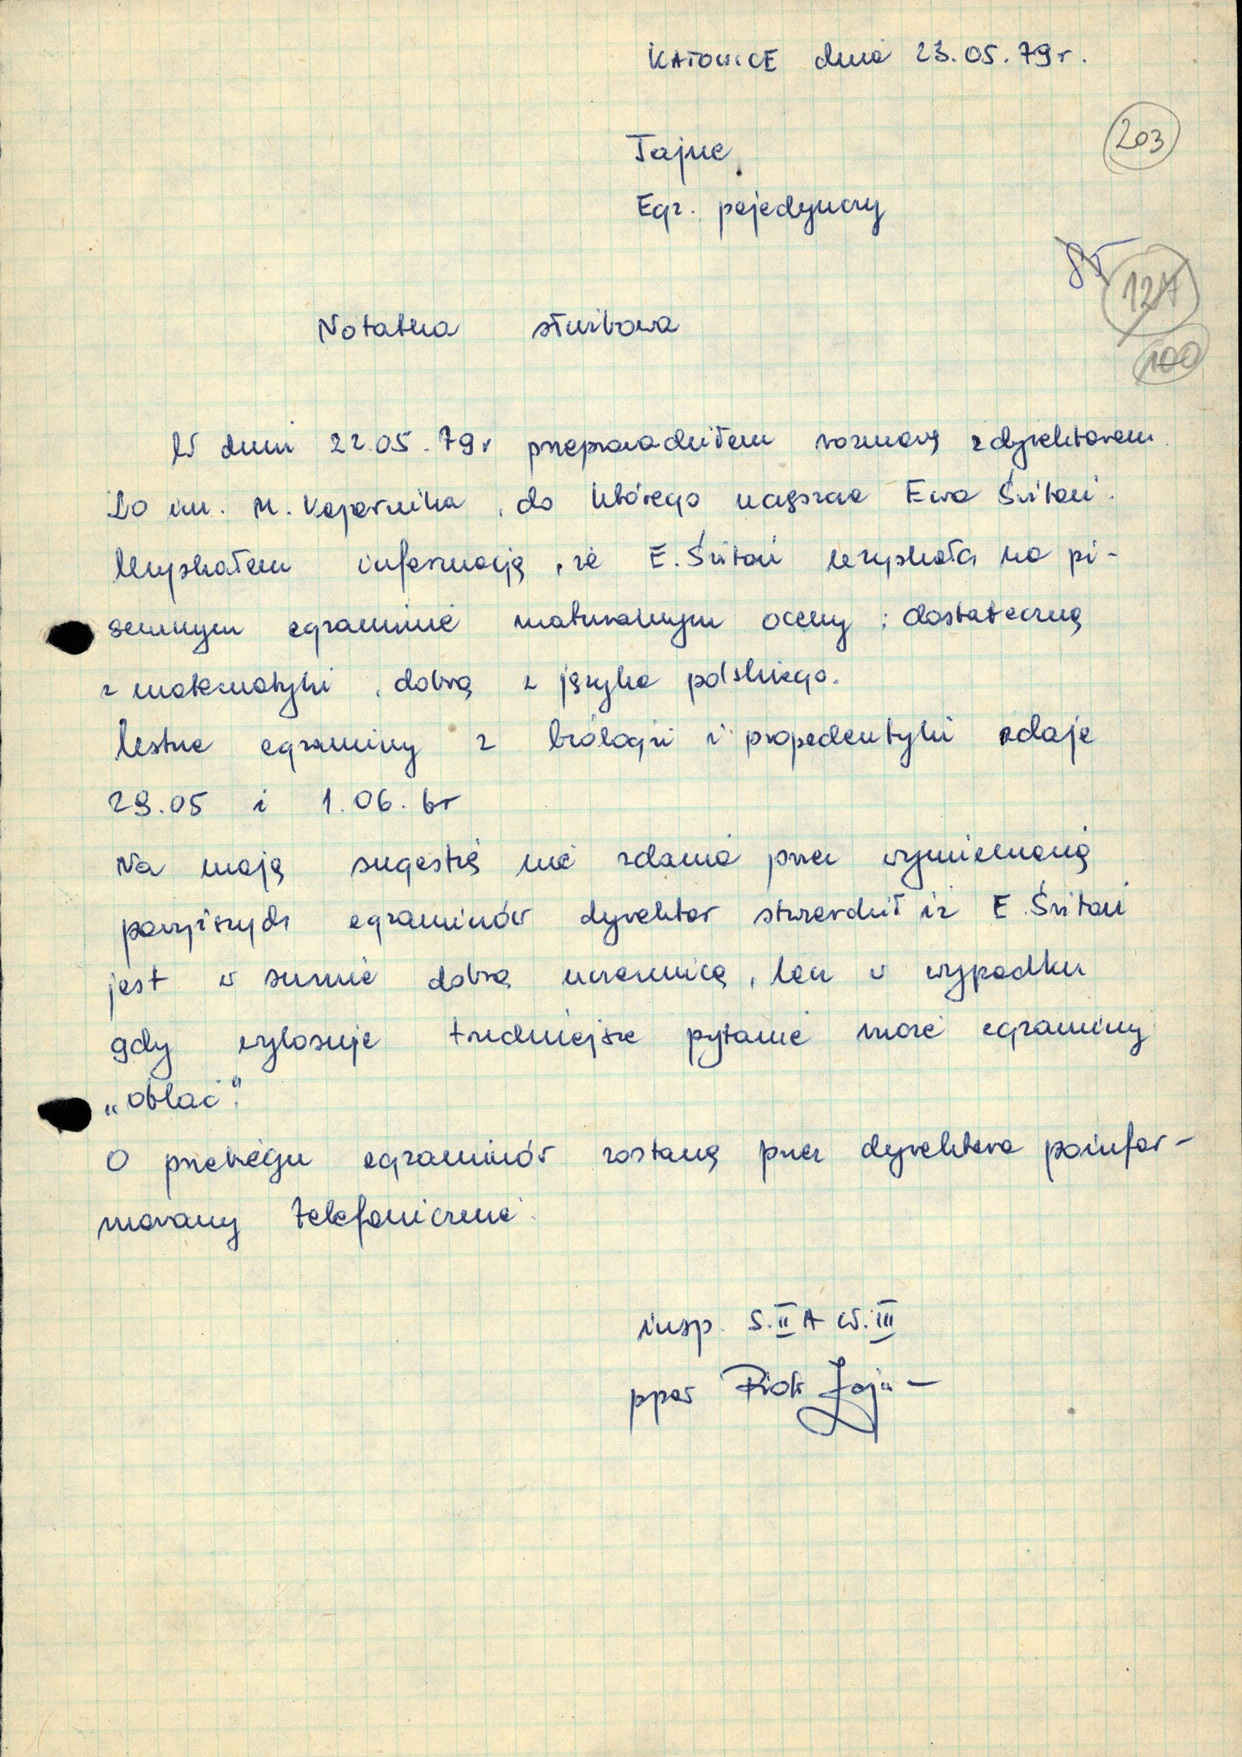 KATOWICE dnia 23.05.79r.
203
Tajne
Egz. pojedynczy
85
127
100
Notatka służbowa
W dniu 22.05.79r przeprowadziłem rozmowę z dyrektorem
LO im. M. Kopernika, do którego uczęszcza Ewa Świtoń.
Uzyskałem informację, że E. Świtoń uzyskała na pi-
semnym egzaminie maturalnym oceny: dostateczną
z matematyki, dobrą z języka polskiego.
Ustne egzaminy z biologii i propedeutyki zdaje
29.05 i 1.06. br
Na moją sugestię nie zdania przez wymienioną
powyższych egzaminów dyrektor stwierdził iż E Świtoń
jest w sumie dobrą uczennicą, lecz w wypadku
gdy wylosuje trudniejsze pytanie może egzaminy
„oblać".
O przebiegu egzaminów zostanę przez dyrektora poinfor-
mowany telefonicznie.
insp. S. II A W. III
ppor Piotr